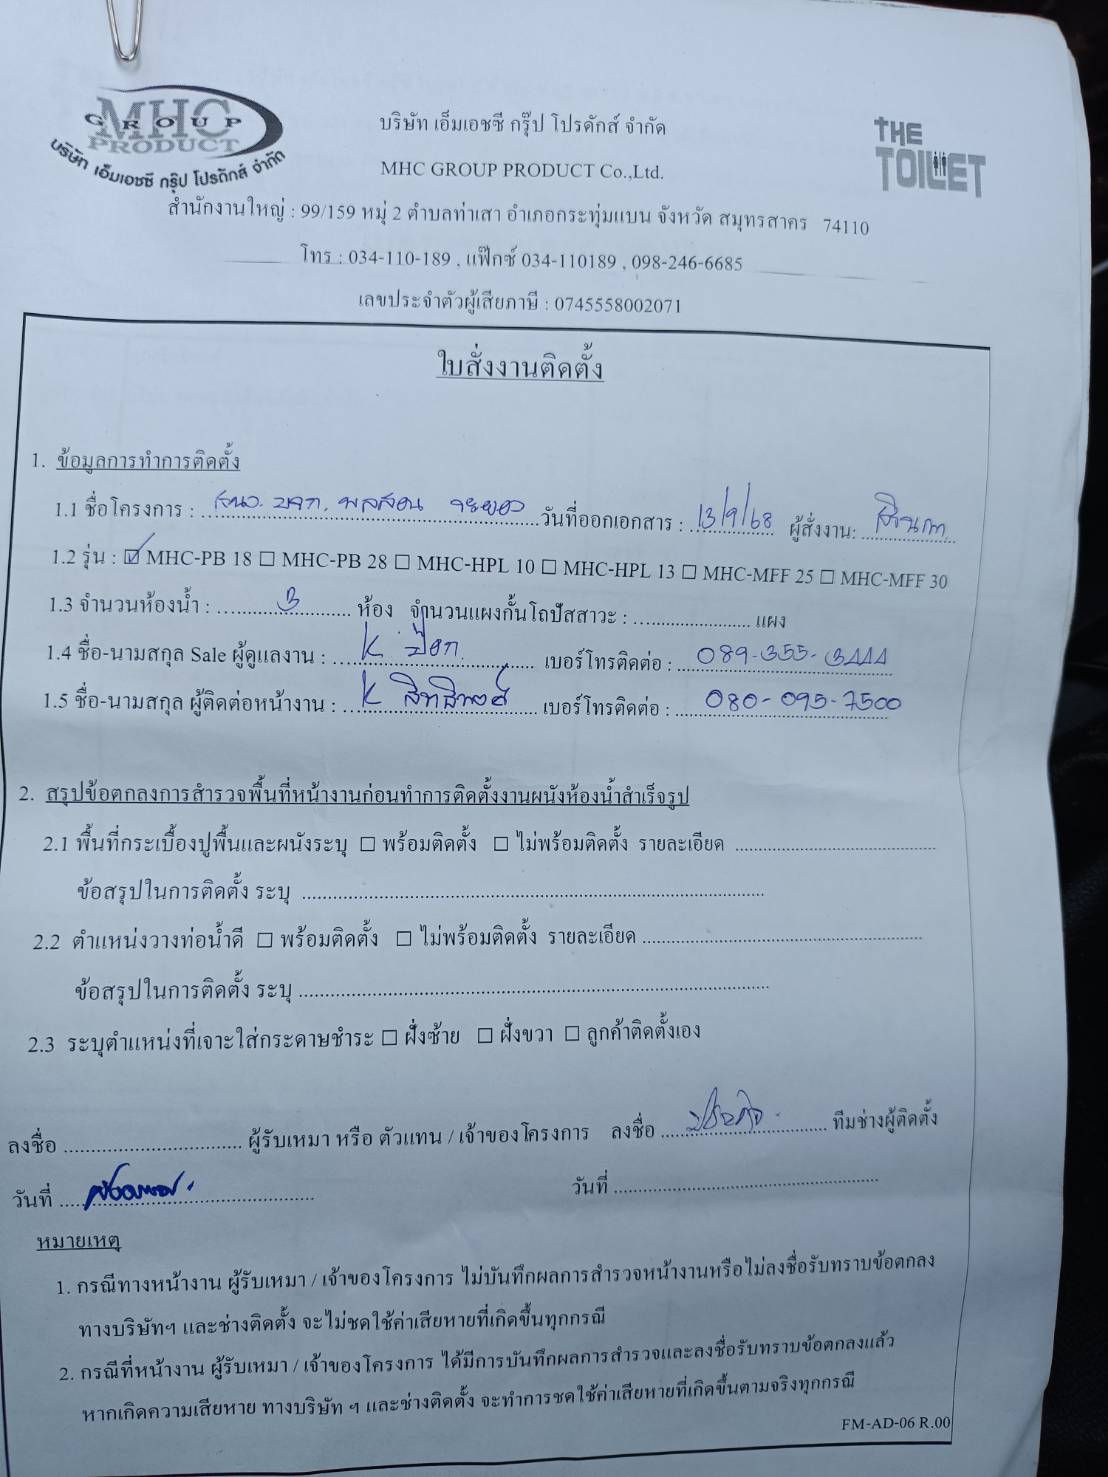 MHC
GROUP
PRODUCT
บริษัท เอ็มเอชซี กรุ๊ป โปรดักส์ จำกัด
บริษัท เอ็มเอชซี กรุ๊ป โปรดักส์ จำกัด
THE
TOILET
MHC GROUP PRODUCT Co.,Ltd.
สำนักงานใหญ่ : 99/159 หมู่ 2 ตำบลท่าเสา อำเภอกระทุ่มแบน จังหวัด สมุทรสาคร 74110
โทร : 034-110-189 , แฟ็กซ์ 034-110189 , 098-246-6685
เลขประจำตัวผู้เสียภาษี : 0745558002071
ใบสั่งงานติดตั้ง
1. ข้อมูลการทำการติดตั้ง
1.1 ชื่อโครงการ : บจก. วันที่ออกเอกสาร : 13/9/68 ผู้สั่งงาน:
1.2 รุ่น : ☑ MHC-PB 18 ☐ MHC-PB 28 ☐ MHC-HPL 10 ☐ MHC-HPL 13 ☐ MHC-MFF 25 ☐ MHC-MFF 30
1.3 จำนวนห้องน้ำ : 3 ห้อง จำนวนแผงกั้นโถปัสสาวะ : ........................ แผง
1.4 ชื่อ-นามสกุล Sale ผู้ดูแลงาน : K ป๊อก เบอร์โทรติดต่อ : 089-355-3444
1.5 ชื่อ-นามสกุล ผู้ติดต่อหน้างาน : K สิทธิพงษ์ เบอร์โทรติดต่อ : 080-095-7500
2. สรุปข้อตกลงการสำรวจพื้นที่หน้างานก่อนทำการติดตั้งงานผนังห้องน้ำสำเร็จรูป
2.1 พื้นที่กระเบื้องปูพื้นและผนังระบุ ☐ พร้อมติดตั้ง ☐ ไม่พร้อมติดตั้ง รายละเอียด ........................
ข้อสรุปในการติดตั้ง ระบุ ........................
2.2 ตำแหน่งวางท่อน้ำดี ☐ พร้อมติดตั้ง ☐ ไม่พร้อมติดตั้ง รายละเอียด ........................
ข้อสรุปในการติดตั้ง ระบุ ........................
2.3 ระบุตำแหน่งที่เจาะใส่กระดาษชำระ ☐ ฝั่งซ้าย ☐ ฝั่งขวา ☐ ลูกค้าติดตั้งเอง
ลงชื่อ ........................ ผู้รับเหมา หรือ ตัวแทน / เจ้าของโครงการ ลงชื่อ ทีมช่างผู้ติดตั้ง
วันที่ วันที่ ........................
หมายเหตุ
1. กรณีทางหน้างาน ผู้รับเหมา / เจ้าของโครงการ ไม่บันทึกผลการสำรวจหน้างานหรือไม่ลงชื่อรับทราบข้อตกลง
ทางบริษัทฯ และช่างติดตั้ง จะไม่ชดใช้ค่าเสียหายที่เกิดขึ้นทุกกรณี
2. กรณีที่หน้างาน ผู้รับเหมา / เจ้าของโครงการ ได้มีการบันทึกผลการสำรวจและลงชื่อรับทราบข้อตกลงแล้ว
หากเกิดความเสียหาย ทางบริษัท ฯ และช่างติดตั้ง จะทำการชดใช้ค่าเสียหายที่เกิดขึ้นตามจริงทุกกรณี
FM-AD-06 R.00